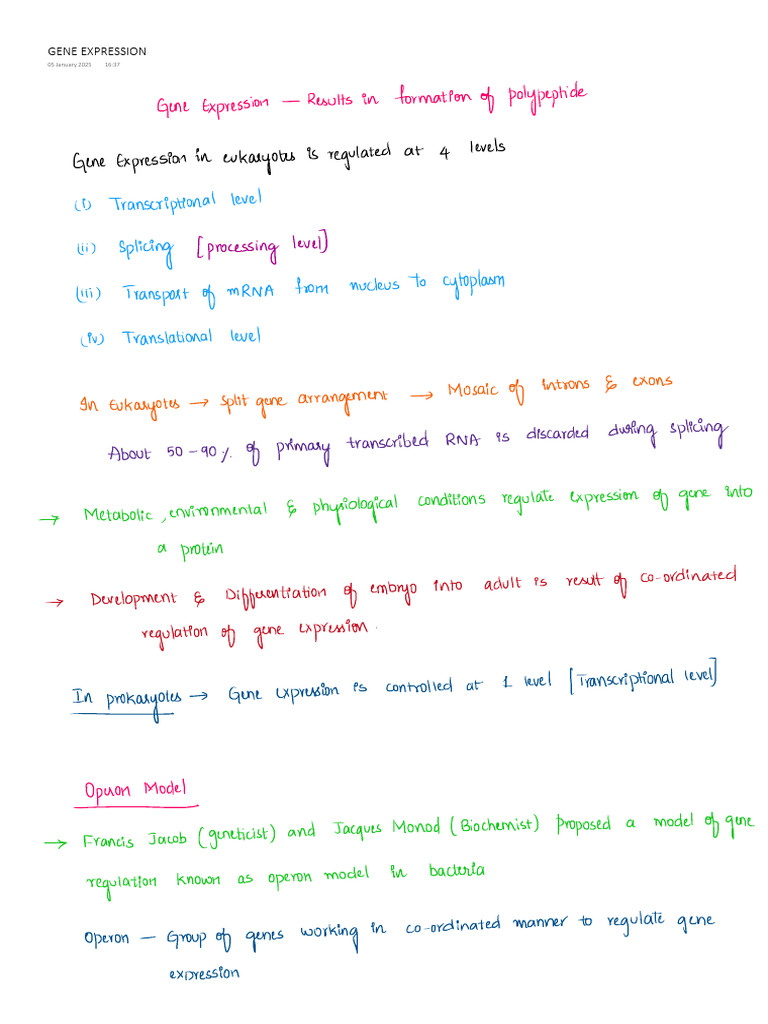 GENE EXPRESSION
05 January 2025 16:37
Gene Expression — Results in formation of polypeptide
Gene Expression in eukaryotes is regulated at 4 levels
(i) Transcriptional level
(ii) Splicing [processing level]
(iii) Transport of mRNA from nucleus to cytoplasm
(iv) Translational level
In Eukaryotes → Split gene arrangement → Mosaic of introns & exons
About 50-90% of primary transcribed RNA is discarded during splicing
→ Metabolic, environmental & physiological conditions regulate expression of gene into
a protein
→ Development & Differentiation of embryo into adult is result of co-ordinated
regulation of gene expression.
In prokaryotes → Gene expression is controlled at 1 level [Transcriptional level]
Operon Model
→ Francis Jacob (geneticist) and Jacques Monod (Biochemist) proposed a model of gene
regulation known as operon model in bacteria
Operon — Group of genes working in co-ordinated manner to regulate gene
expression